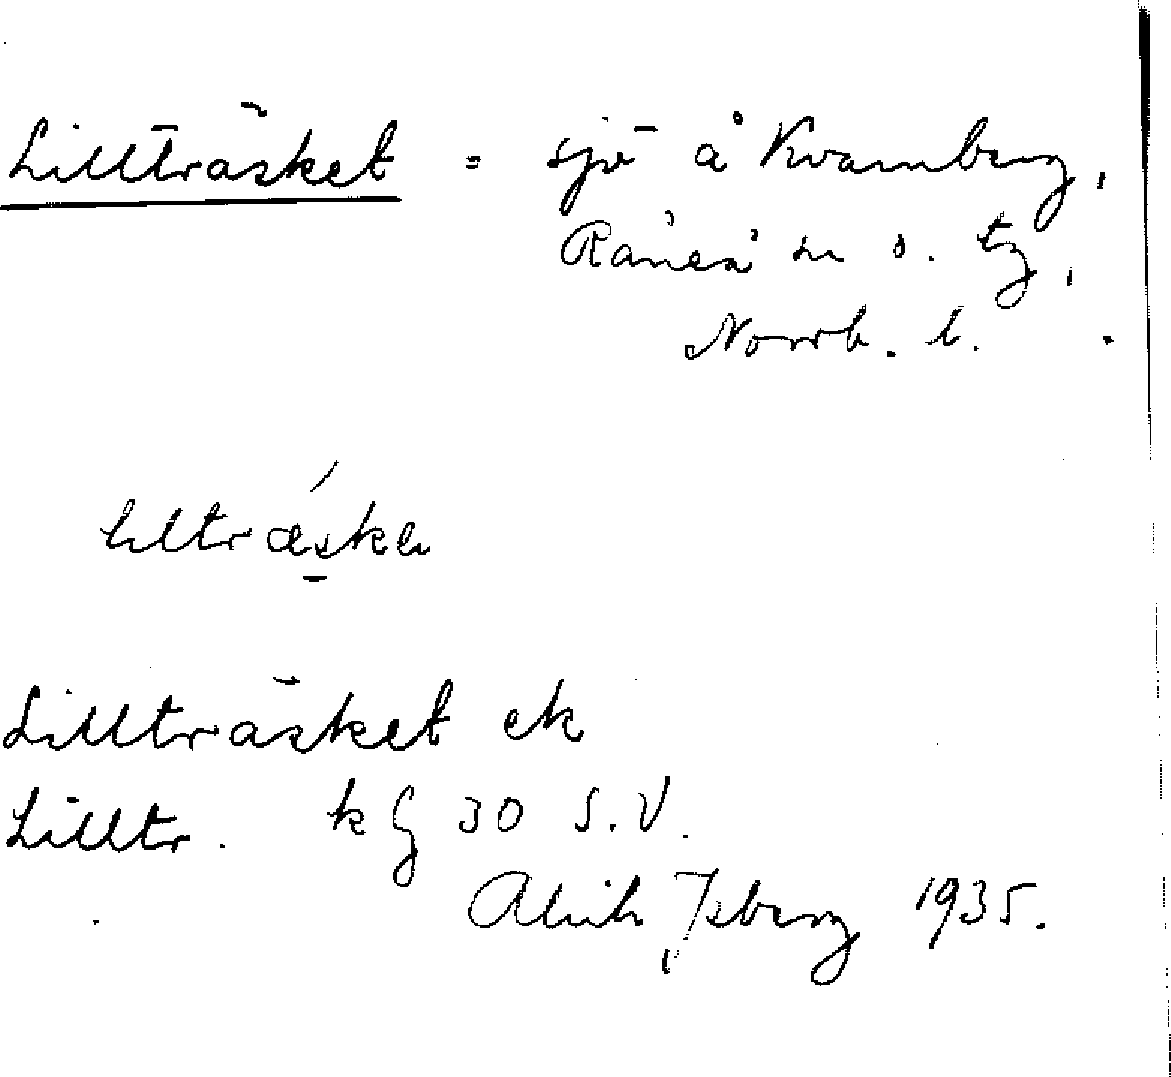 Lillträsket = sjö å Kvarnberg,
Råneå sn s. tg,
Norrb. l.
lilltræske
Lillträsket ek
Lilltr. kg 30 S.V.
Alrik Isberg 1935.